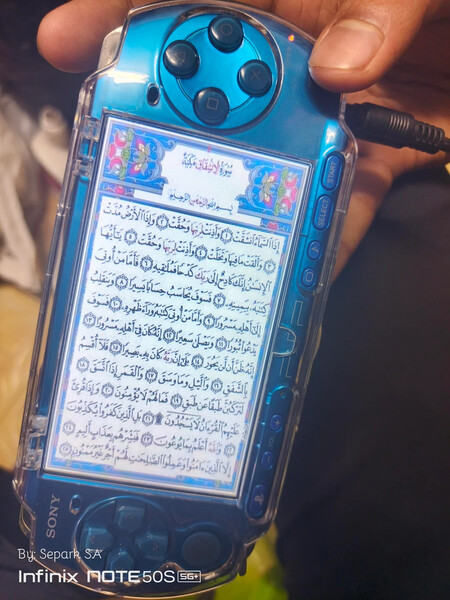 سُورَةُ الِانشِقَاقِ مَكِّيَّة
بِسْمِ اللَّهِ الرَّحْمَٰنِ الرَّحِيمِ
إِذَا السَّمَاءُ انشَقَّتْ ١ وَأَذِنَتْ لِرَبِّهَا وَحُقَّتْ ٢ وَإِذَا الْأَرْضُ مُدَّتْ
٣ وَأَلْقَتْ مَا فِيهَا وَتَخَلَّتْ ٤ وَأَذِنَتْ لِرَبِّهَا وَحُقَّتْ ٥ يَٰأَيُّهَا
الْإِنسَٰنُ إِنَّكَ كَادِحٌ إِلَىٰ رَبِّكَ كَدْحًا فَمُلَٰقِيهِ ٦ فَأَمَّا مَنْ أُوتِيَ
كِتَٰبَهُ بِيَمِينِهِ ٧ فَسَوْفَ يُحَاسَبُ حِسَابًا يَسِيرًا ٨ وَيَنقَلِبُ
إِلَىٰ أَهْلِهِ مَسْرُورًا ٩ وَأَمَّا مَنْ أُوتِيَ كِتَٰبَهُ وَرَاءَ ظَهْرِهِ ١٠ فَسَوْفَ
يَدْعُوا ثُبُورًا ١١ وَيَصْلَىٰ سَعِيرًا ١٢ إِنَّهُ كَانَ فِي أَهْلِهِ مَسْرُورًا ١٣
إِنَّهُ ظَنَّ أَن لَّن يَحُورَ ١٤ بَلَىٰ إِنَّ رَبَّهُ كَانَ بِهِ بَصِيرًا ١٥ فَلَا أُقْسِمُ
بِالشَّفَقِ ١٦ وَاللَّيْلِ وَمَا وَسَقَ ١٧ وَالْقَمَرِ إِذَا اتَّسَقَ ١٨
لَتَرْكَبُنَّ طَبَقًا عَن طَبَقٍ ١٩ فَمَا لَهُمْ لَا يُؤْمِنُونَ ٢٠ وَإِذَا قُرِئَ
عَلَيْهِمُ الْقُرْءَانُ لَا يَسْجُدُونَ ۩ ٢١ بَلِ الَّذِينَ كَفَرُوا يُكَذِّبُونَ
٢٢ وَاللَّهُ أَعْلَمُ بِمَا يُوعُونَ ٢٣ فَبَشِّرْهُم بِعَذَابٍ أَلِيمٍ ٢٤
إِلَّا الَّذِينَ ءَامَنُوا وَعَمِلُوا الصَّٰلِحَٰتِ لَهُمْ أَجْرٌ غَيْرُ مَمْنُونٍ ٢٥
START
SELECT
VOL
SONY
By: Separk S.A
Infinix NOTE50S 5G+